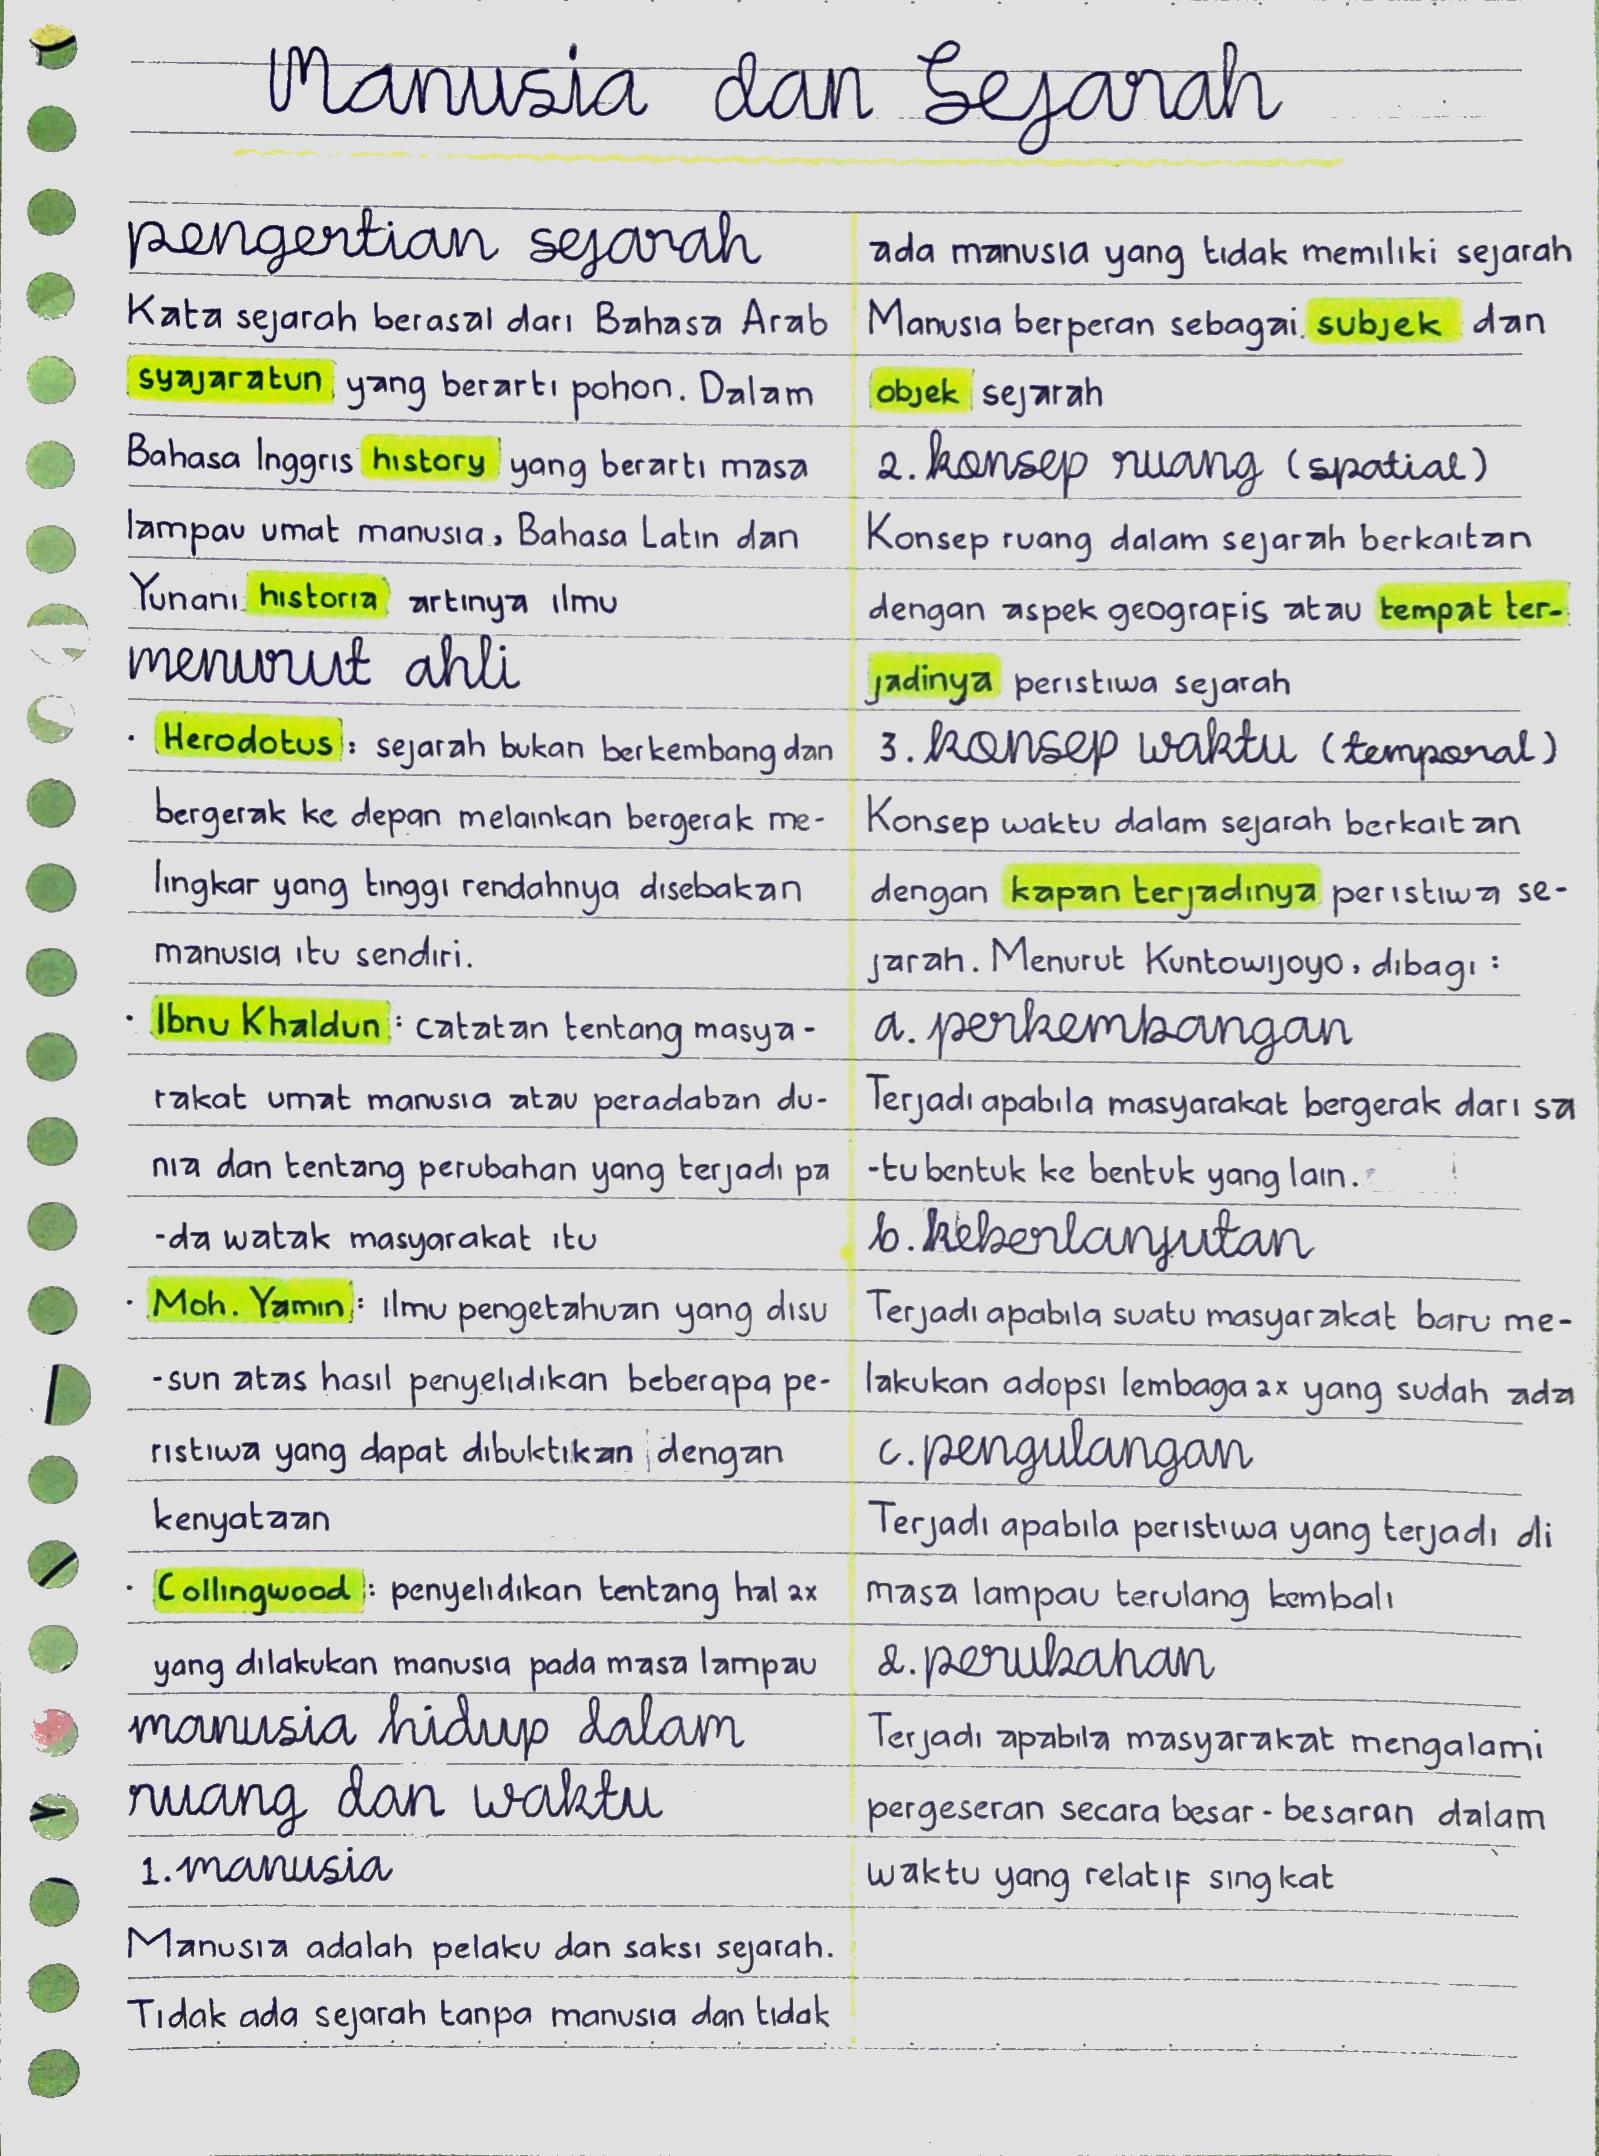 Manusia dan Sejarah
pengertian sejarah
Kata sejarah berasal dari Bahasa Arab
syajaratun yang berarti pohon. Dalam
Bahasa Inggris history yang berarti masa
lampau umat manusia, Bahasa Latin dan
Yunani historia artinya ilmu
menurut ahli
· Herodotus : sejarah bukan berkembang dan
bergerak ke depan melainkan bergerak me-
lingkar yang tinggi rendahnya disebakan
manusia itu sendiri.
· Ibnu Khaldun : catatan tentang masya-
rakat umat manusia atau peradaban du-
nia dan tentang perubahan yang terjadi pa
-da watak masyarakat itu
· Moh. Yamin : ilmu pengetahuan yang disu
-sun atas hasil penyelidikan beberapa pe-
ristiwa yang dapat dibuktikan dengan
kenyataan
· Collingwood : penyelidikan tentang hal 2x
yang dilakukan manusia pada masa lampau
manusia hidup dalam
ruang dan waktu
1. manusia
Manusia adalah pelaku dan saksi sejarah.
Tidak ada sejarah tanpa manusia dan tidak
ada manusia yang tidak memiliki sejarah
Manusia berperan sebagai subjek dan
objek sejarah
2. konsep ruang (spatial)
Konsep ruang dalam sejarah berkaitan
dengan aspek geografis atau tempat ter-
jadinya peristiwa sejarah
3. konsep waktu (temporal)
Konsep waktu dalam sejarah berkaitan
dengan kapan terjadinya peristiwa se-
jarah. Menurut Kuntowijoyo, dibagi :
a. perkembangan
Terjadi apabila masyarakat bergerak dari sa
-tu bentuk ke bentuk yang lain.
b. keberlanjutan
Terjadi apabila suatu masyarakat baru me-
lakukan adopsi lembaga 2x yang sudah ada
c. pengulangan
Terjadi apabila peristiwa yang terjadi di
masa lampau terulang kembali
d. perubahan
Terjadi apabila masyarakat mengalami
pergeseran secara besar-besaran dalam
waktu yang relatif singkat